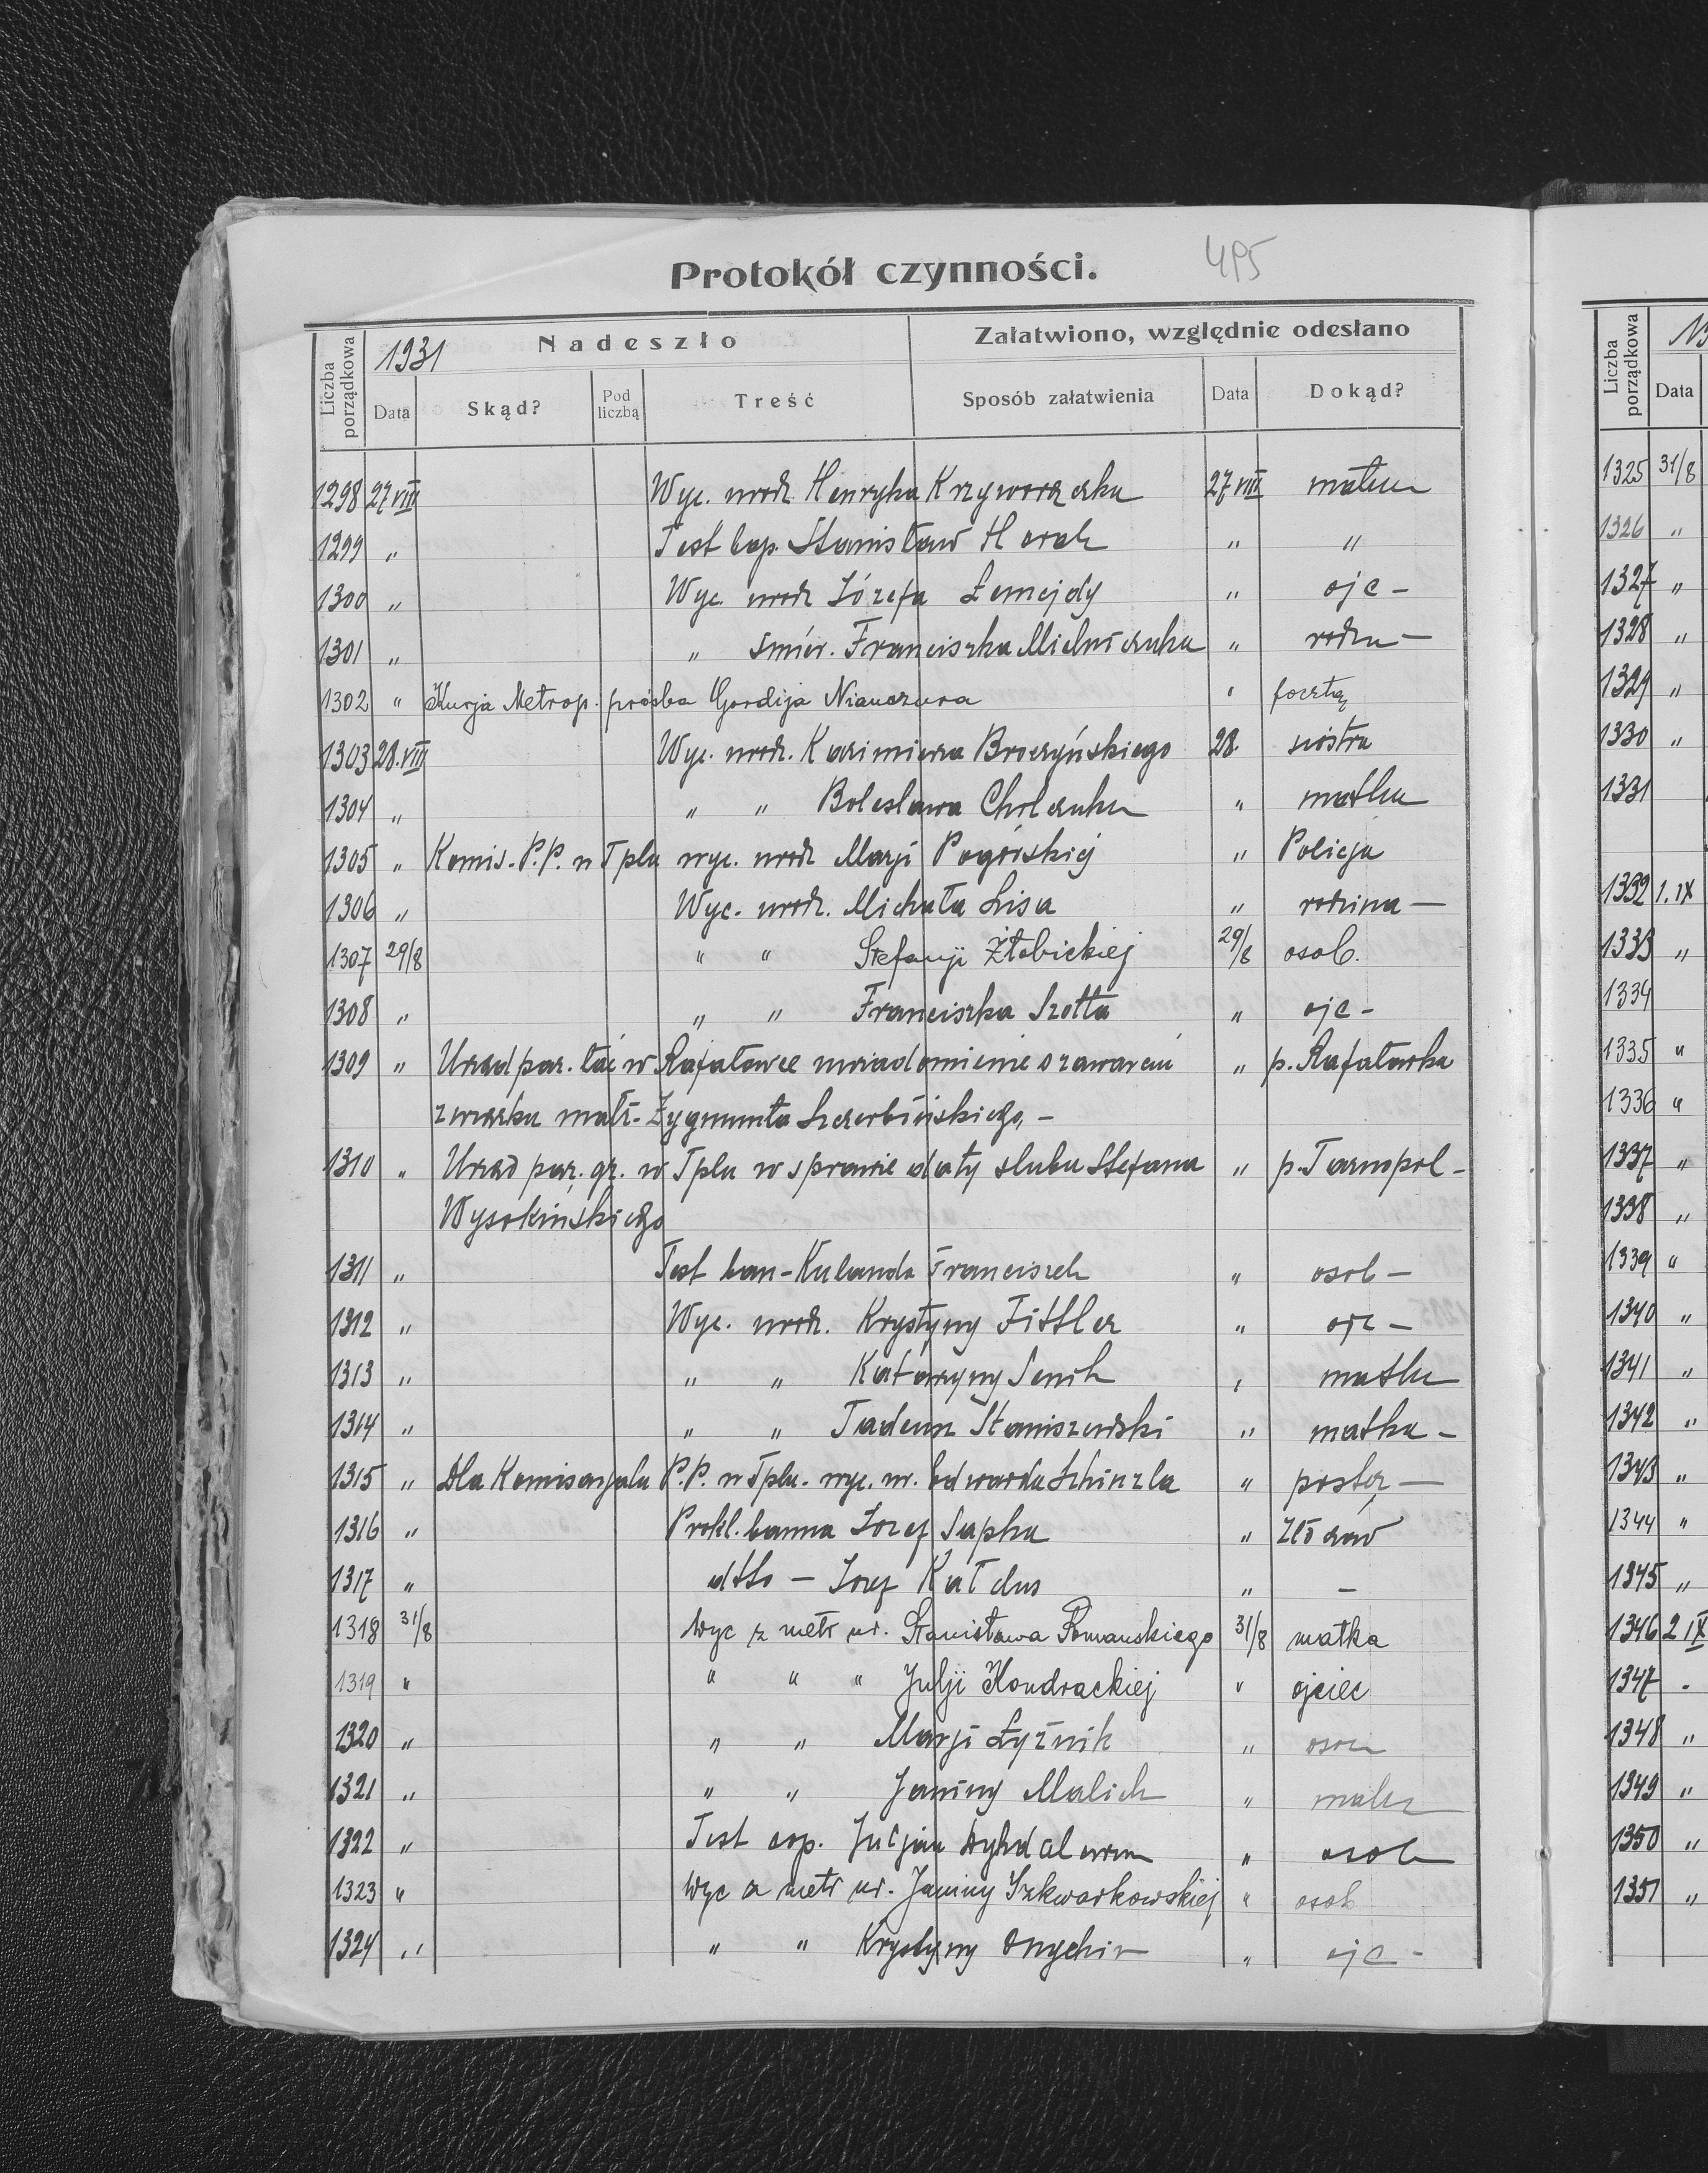 Protokół czynności. 495
1931 Nadeszło Załatwiono, względnie odesłano
Liczba porządkowa Data Skąd? Pod liczbą Treść Sposób załatwienia Data Dokąd?
1298 27 VIII Wyc. urodz. Henryka 27 VIII matka
1299 " Test bap. Stanisław Horak " "
1300 " Wyc. urodz Józefa Łemejdy " ojc -
1301 " " śmier. Franciszka Michniczuka " rodzn -
1302 " Kurja Metrop. prośba Gordija " pocztą
1303 28.VIII Wyc. urodz. Kazimierza Broczyńskiego 28. siostra
1304 " " " Bolesława Cholczuka " matka
1305 " Komis. P.P. w Tplu wyc. urodz Marji Pogórskiej " Policja
1306 " Wyc. urodz. Michała Lisa " rodzina -
1307 29/8 " " Stefanji Żłobickiej 29/8 osob.
1308 " " " Franciszka Szołta " ojc -
1309 " Urząd par. łać w Rafałowce uwiadomienie o zawarciu " p. Rafałówka
związku małż. Zygmunta Szczerbińskiego, -
1310 " Urząd par. gr. w Tplu w sprawie daty ślubu Stefana " p. Tarnopol -
Wysokińskiego
1311 " Test ban - Kulanda Franciszek " osob -
1312 " Wyc. urodz. Krystyny Fittler " ojc -
1313 " " " Katarzyny Senik " matka
1314 " " " Tadeusz Staniszewski " matka -
1315 " Dla Komisarjatu P.P. w Tplu. wyc. ur. Edwarda Schinzla " posłą -
1316 " Prokl. banna Józef Sapka " Złoczów
1317 " dtto - Józef Kałdus " -
1318 31/8 Wyc z metr ur. Stanisława Romanskiego 31/8 matka
1319 " " " " Julji Kondrackiej " ojciec
1320 " " " Marji Łyżnik " osob
1321 " " " Janiny Malich " matka
1322 " Test cop. Juljan " osob
1323 " Wyc z metr ur. Janiny Szkwarkowskiej " osob
1324 " " " Krystyny " ojc -
Liczba porządkowa Data
1325 31/8
1326 "
1327 "
1328 "
1329 "
1330 "
1331
1332 1.IX
1333 "
1334
1335 "
1336 "
1337 "
1338 "
1339 "
1340 "
1341 "
1342 "
1343 "
1344 "
1345 "
1346 2 IX
1347 "
1348 "
1349 "
1350 "
1351 "